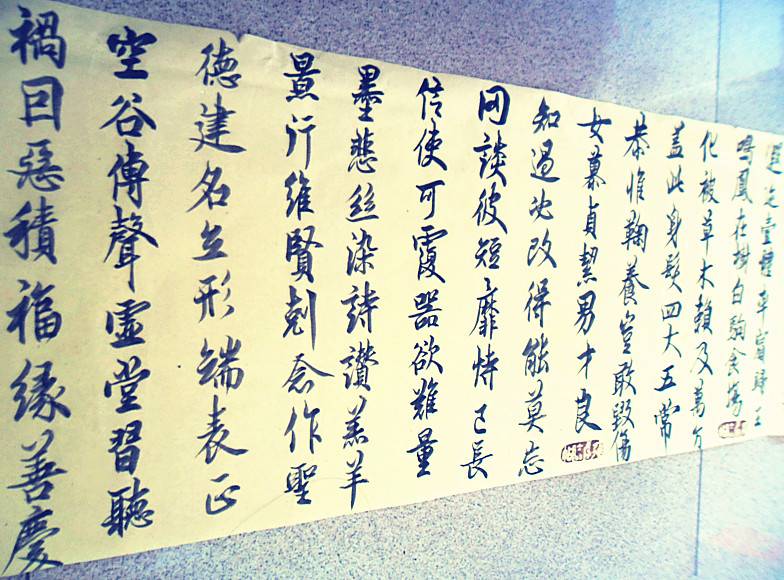 遐迩壹體率賓歸王
鳴鳳在樹白駒食場
化被草木賴及萬方
蓋此身髮四大五常
恭惟鞠養豈敢毀傷
女慕貞絜男才良
知過必改得能莫忘
罔談彼短靡恃己長
信使可覆器欲難量
墨悲絲染詩讚羔羊
景行維賢剋念作聖
德建名立形端表正
空谷傳聲虛堂習聽
禍因惡積福緣善慶